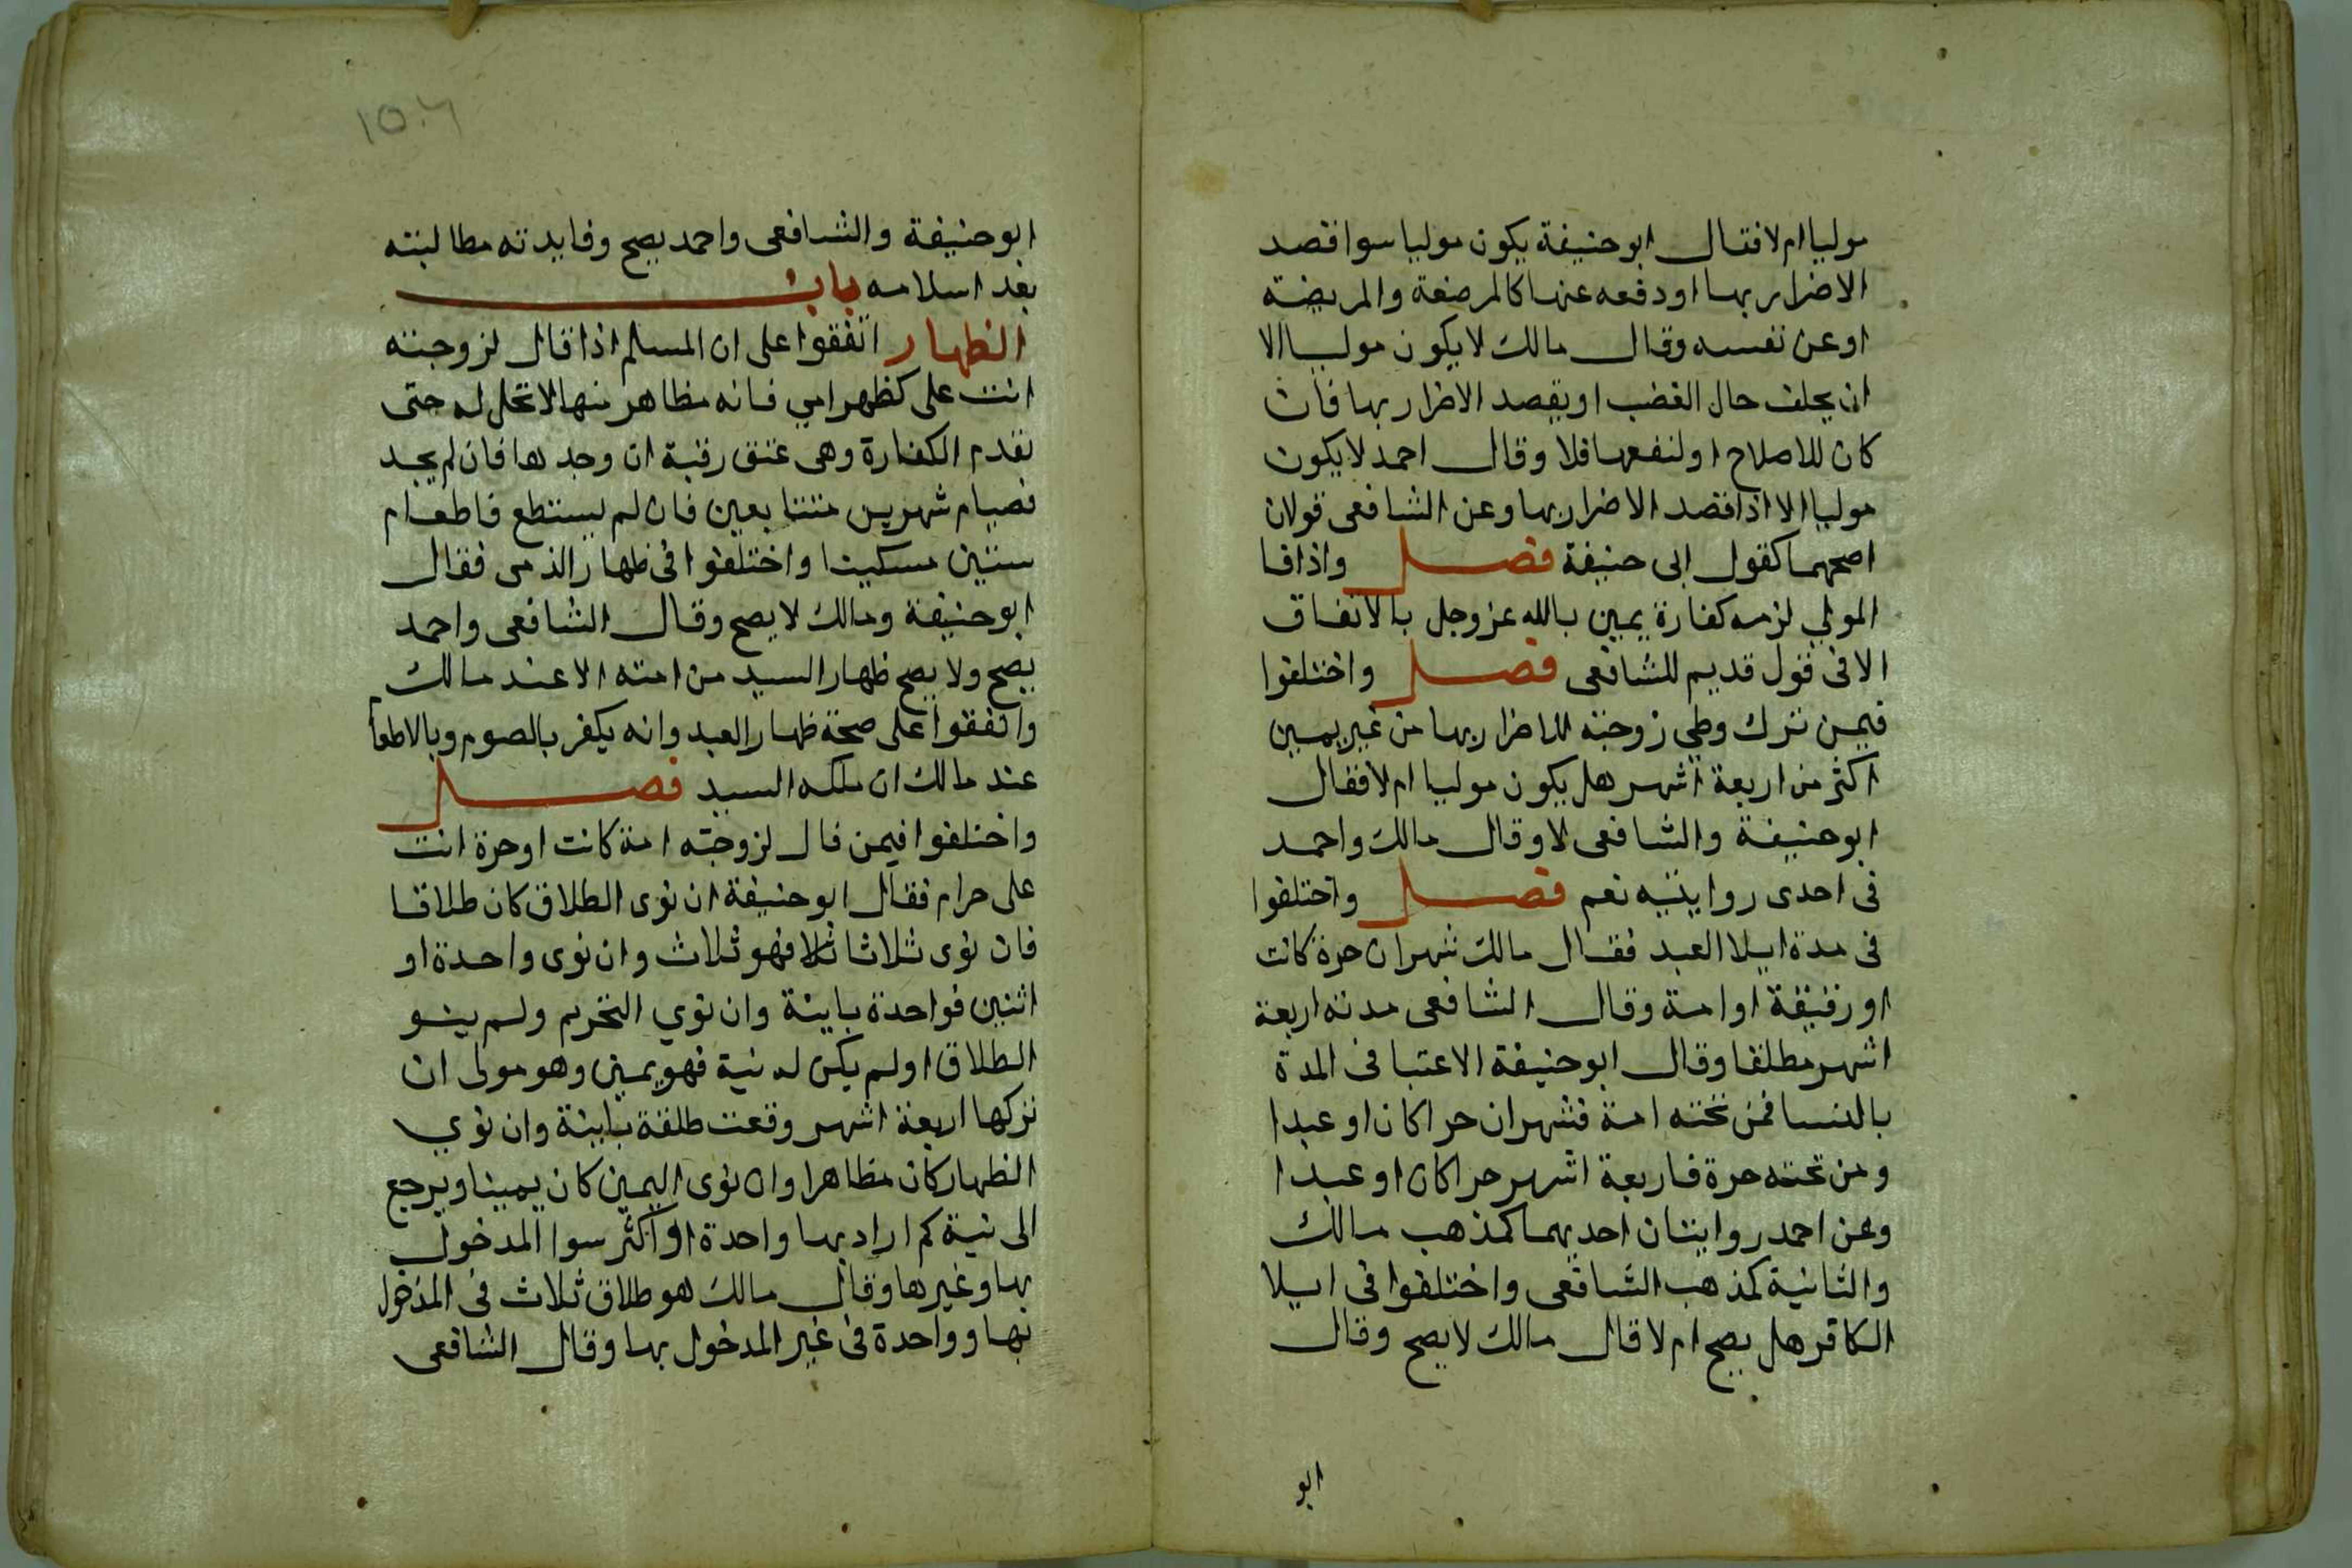 موليا ام لا فقال ابو حنيفة يكون موليا سوا قصد
الاضرار بها او دفعه عنها كالمرضعة والمريضة
او عن نفسه وقال مالك لا يكون موليا الا
ان يحلف حال الغضب او يقصد الاضرار بها فان
كان للاصلاح او لنفعها فلا وقال احمد لا يكون
موليا الا اذا قصد الاضرار بها وعن الشافعى قولان
اصحهما كقول ابى حنيفة فصل واذا فا
المولي لزمه كفارة يمين بالله عز وجل بالاتفاق
الا فى قول قديم للشافعى فصل واختلفوا
فيمن ترك وطي زوجته للاضرار بها من غير يمين
اكثر من اربعة اشهر هل يكون موليا ام لا فقال
ابو حنيفة والشافعى لا وقال مالك واحمد
فى احدى روايتيه نعم فصل واختلفوا
فى مدة ايلا العبد فقال مالك شهران حرة كانت
او رقيقة او امة وقال الشافعى مدته اربعة
اشهر مطلقا وقال ابو حنيفة الاعتبا فى المدة
بالنسا فمن تحته امة فشهران حرا كان او عبدا
ومن تحته حرة فاربعة اشهر حرا كان او عبدا
وعن احمد روايتان احديهما كمذهب مالك
والثانية كمذهب الشافعى واختلفوا فى ايلا
الكافر هل يصح ام لا قال مالك لا يصح وقال
ابو
ابو حنيفة والشافعى واحمد يصح وفايدته مطالبته
بعد اسلامه باب
الظهار اتفقوا على ان المسلم اذا قال لزوجته
انت على كظهر امي فانه مظاهر منها لا تحل له حتى
يقدم الكفارة وهى عتق رقبة ان وجدها فان لم يجد
فصيام شهرين متتابعين فان لم يستطع فاطعام
ستين مسكينا واختلفوا فى ظهار الذمى فقال
ابو حنيفة ومالك لا يصح وقال الشافعى واحمد
يصح ولا يصح ظهار السيد من امته الا عند مالك
واتفقوا على صحة ظهار العبد وانه يكفر بالصوم وبالاطعام
عند مالك ان ملكه السيد فصل
واختلفوا فيمن قال لزوجته امة كانت او حرة انت
على حرام فقال ابو حنيفة ان نوى الطلاق كان طلاقا
فان نوى ثلاثا ثلاثا فهو ثلاث وان نوى واحدة او
اثنين فواحدة باينة وان نوي التحريم ولم ينو
الطلاق او لم يكن له نية فهو يمين وهو مولى ان
تركها اربعة اشهر وقعت طلقة باينة وان نوي
الظهار كان مظاهرا وان نوى اليمين كان يمينا ويرجع
الى نية كم اراد بها واحدة او اكثر سوا المدخول
بها وغيرها وقال مالك هو طلاق ثلاث فى المدخول
بها وواحدة فى غير المدخول بها وقال الشافعى